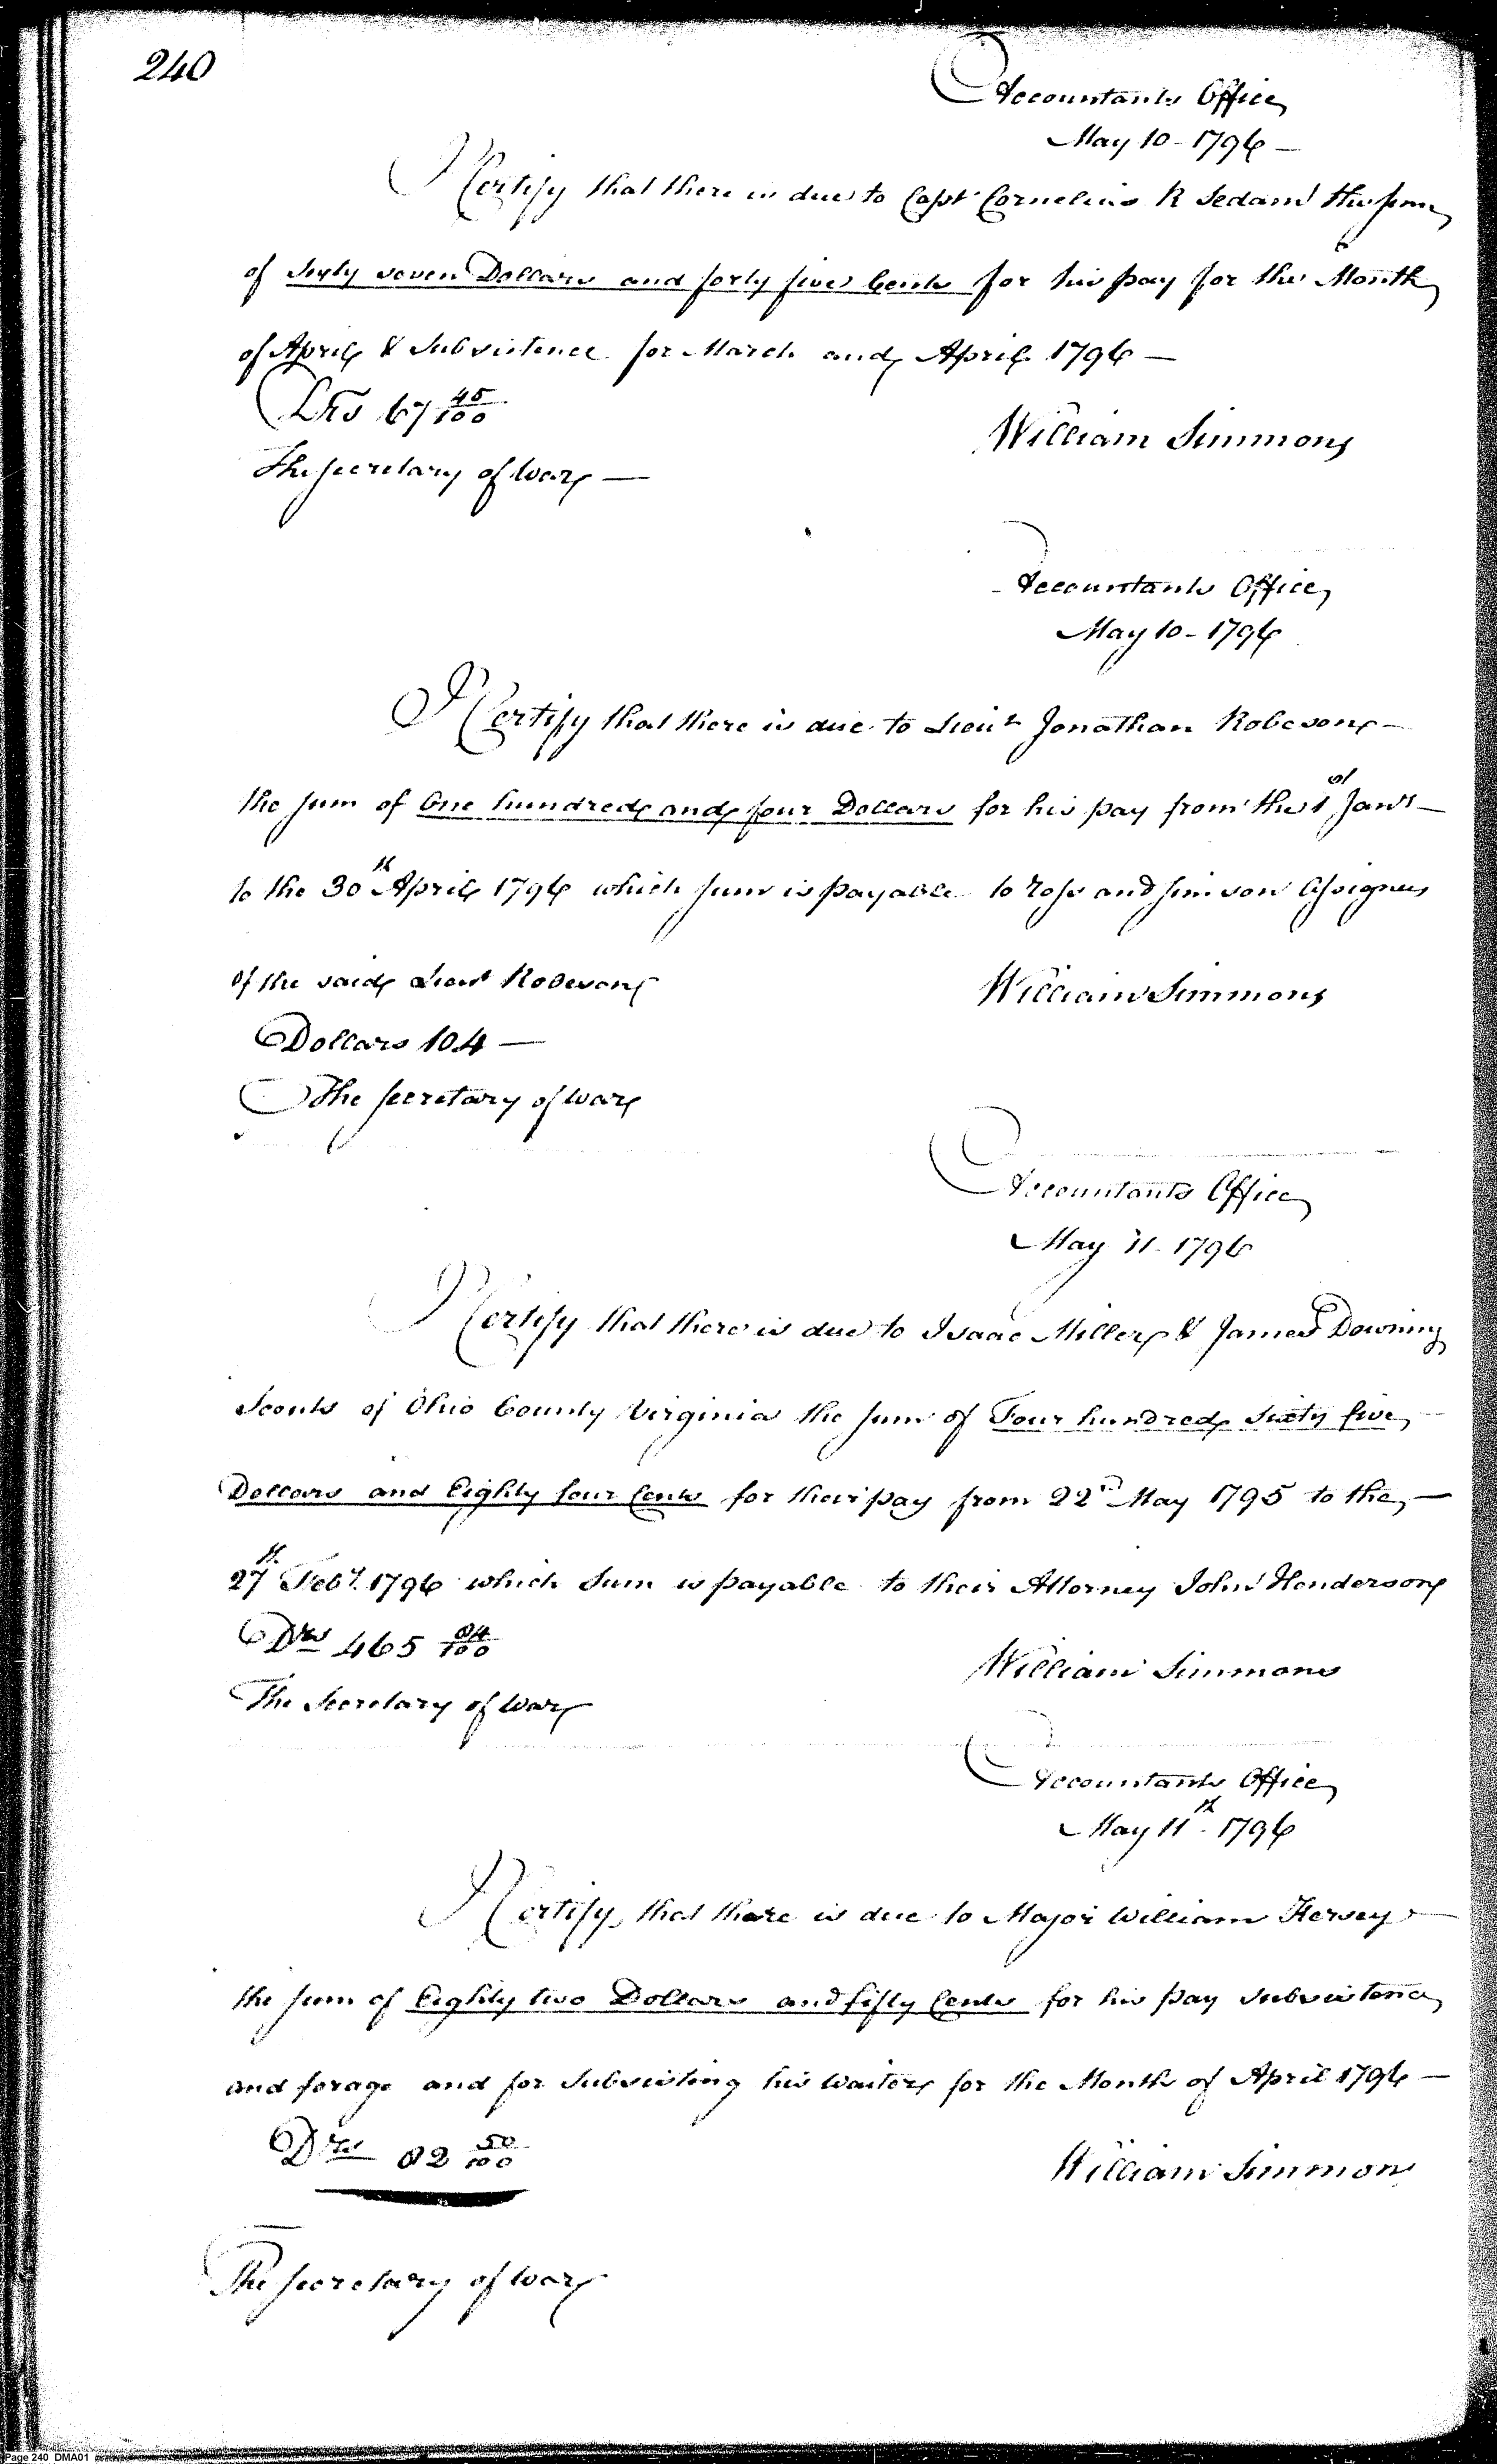 240
Accountants Office
May 10 - 1796 —
I Certify that there is due to Capt Cornelius R Sedam the sum
of Sixty seven Dollars and forty five Cents for his pay for the Month
of April & Subsistence for March and April 1796 —
Drs 67 45/100
William Simmons
The Secretary of War —
Accountants Office
May 10 - 1796
I Certify that there is due to Lieut Jonathan Robeson —
the sum of One hundred and four Dollars for his pay from the 1st Jany —
to the 30th April 1796 which sum is payable to Ross and Simson Assignees
of the said Lieut Robeson
William Simmons
Dollars 104 —
The Secretary of War
Accountants Office
May 11 - 1796
I Certify that there is due to Isaac Miller & James Downing
Scouts of Ohio County Virginia the sum of Four hundred Sixty five —
Dollars and Eighty four Cents for their pay from 22nd May 1795 to the —
27th Feby 1796 which Sum is payable to their Attorney John Henderson
Drs 465 84/100
William Simmons
The Secretary of War
Accountants Office
May 11th - 1796
I Certify that there is due to Major William Kersey —
the sum of Eighty two Dollars and fifty Cents for his pay subsistence
and forage and for Subsisting his Waiters for the Month of April 1796 —
Drs 82 50/100
William Simmons
The Secretary of War
Page 240 DMA01